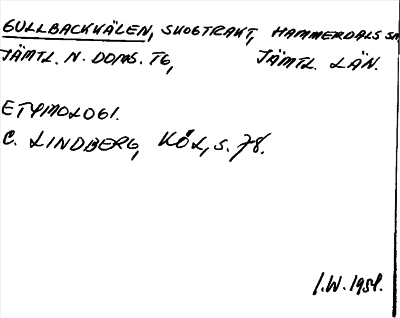 GULLBACKKÄLEN, SKOGTRAKT, HAMMERDALS SN
JÄMTL. N. DOMS. TG, JÄMTL. LÄN.
ETYMOLOGI.
C. LINDBERG, KÖL, S. 78.
I.W. 1951.